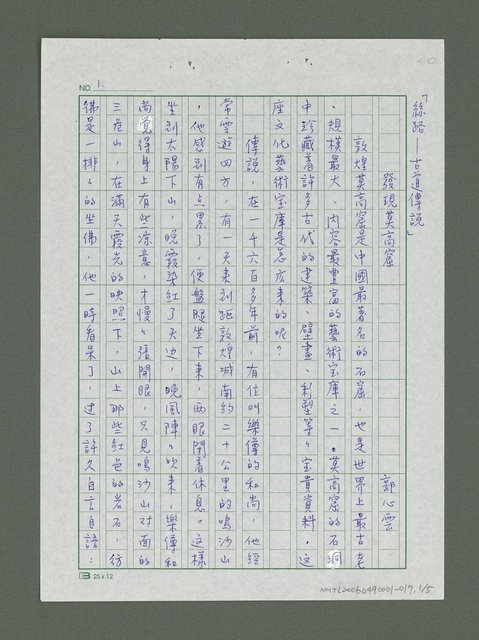 「絲路—古道傳說」
發現莫高窟
郭心雲
敦煌莫高窟是中國最著名的石窟，也是世界上最古老
、規模最大、內容最豐富的藝術宝庫之一。莫高窟的石洞
中珍藏著許多古代的建築、壁畫、彩塑等々宝貴資料。这
座文化藝術宝庫是怎広来的呢？
傳說，在一千六百多年前，有位叫樂僔的和尚，他經
常雲遊四方，有一天来到距敦煌城南約二十公里的鳴沙山
，他感到有点累了，便盤腿坐下来，兩眼閉着休息。這樣
坐到太陽下山，晚霞染紅了天边，晚風陣々吹来，樂僔和
尚覺得身上有些涼意，才慢々張開眼，只見鳴沙山对面的
三危山，在滿天霞光的映照下，山上那些紅色的岩石，彷
彿是一排々的坐佛，他一時看呆了，过了許久自言自語：
NO. 1.
25 x 12
NMTL20060490001-017, 1/5